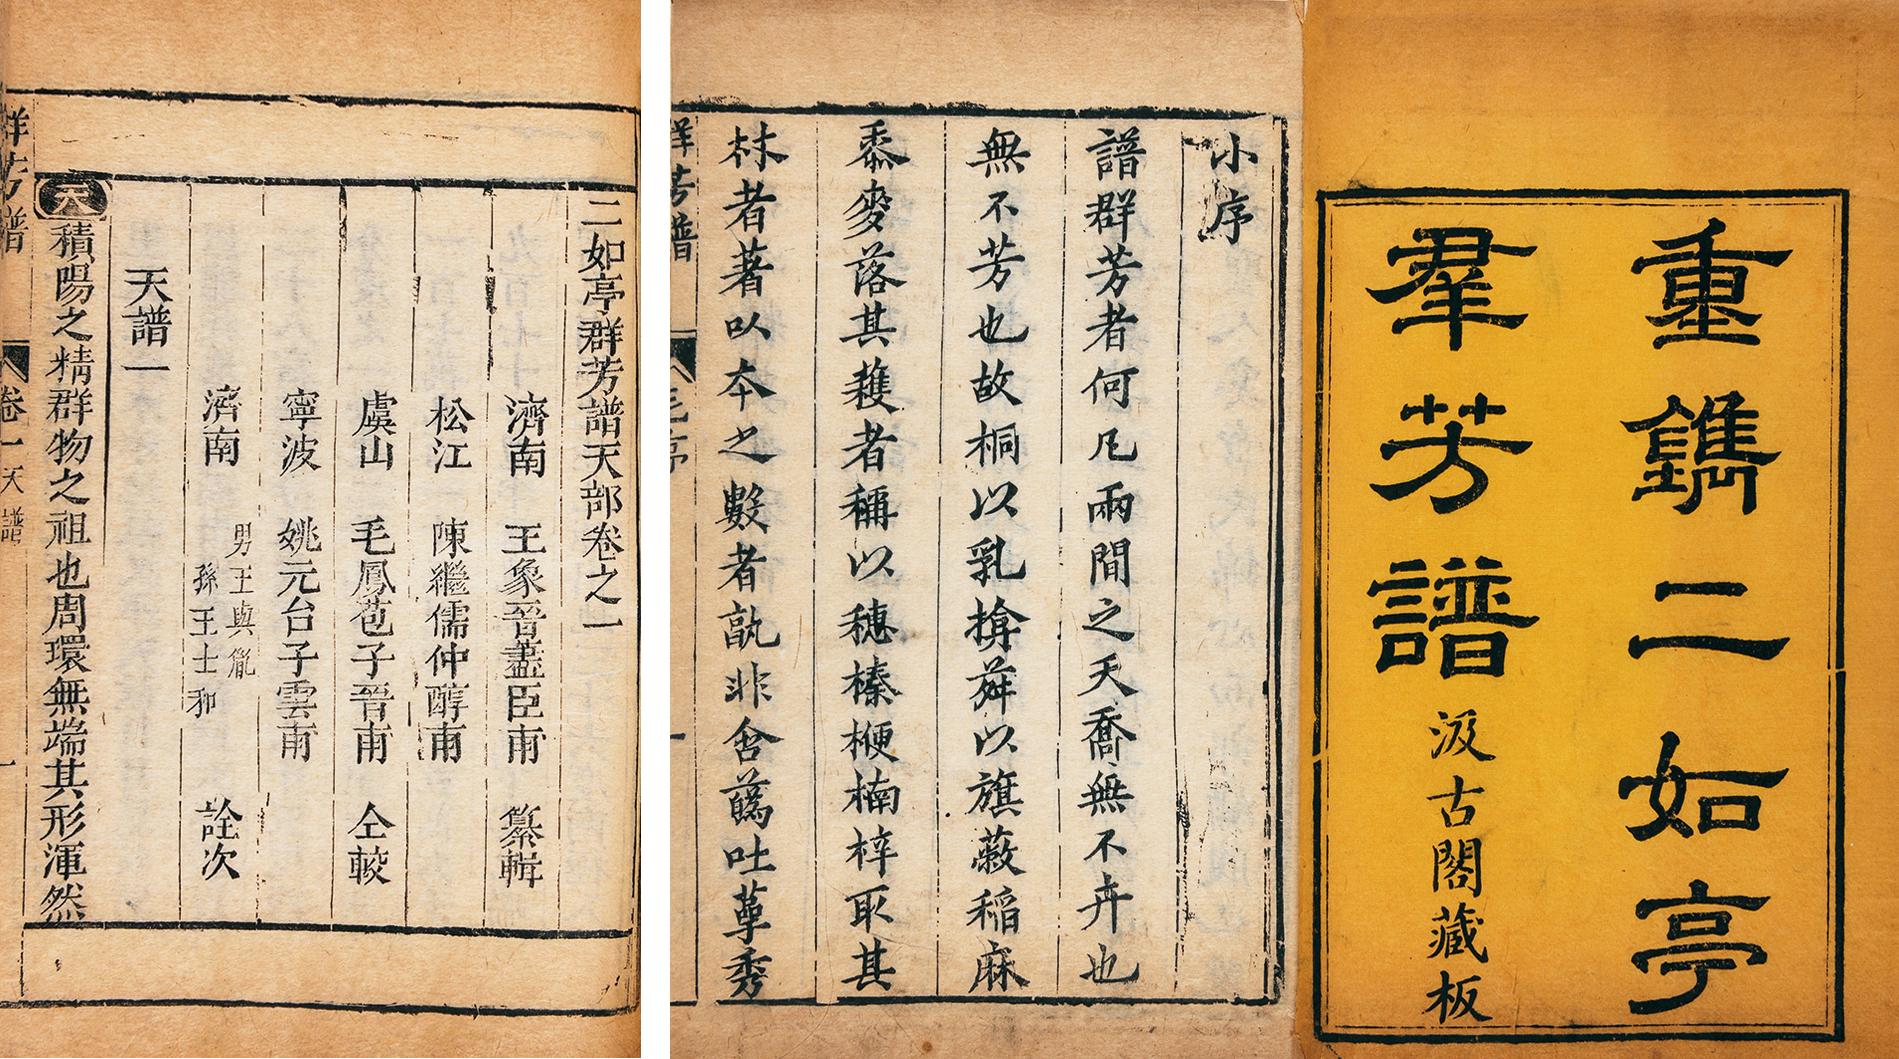 重鐫二如亭
羣芳譜
汲古閣藏板
小序
譜群芳者何凡兩間之夭喬無不卉也
無不芳也故桐以乳搼荈以旗蔌稻麻
黍麥落其蓛者稱以穗榛楩楠梓取其
林者著以本之數者孰非含蘤吐蕚秀
群芳譜
二如亭群芳譜天部卷之一
濟南 王象晉藎臣甫 纂輯
松江 陳繼儒仲醇甫
虞山 毛鳳苞子晉甫 仝較
寧波 姚元台子雲甫
濟南 男王與胤 孫王士和 詮次
天譜一
天 積陽之精群物之祖也周環無端其形渾然
群芳譜 卷一 天譜 一